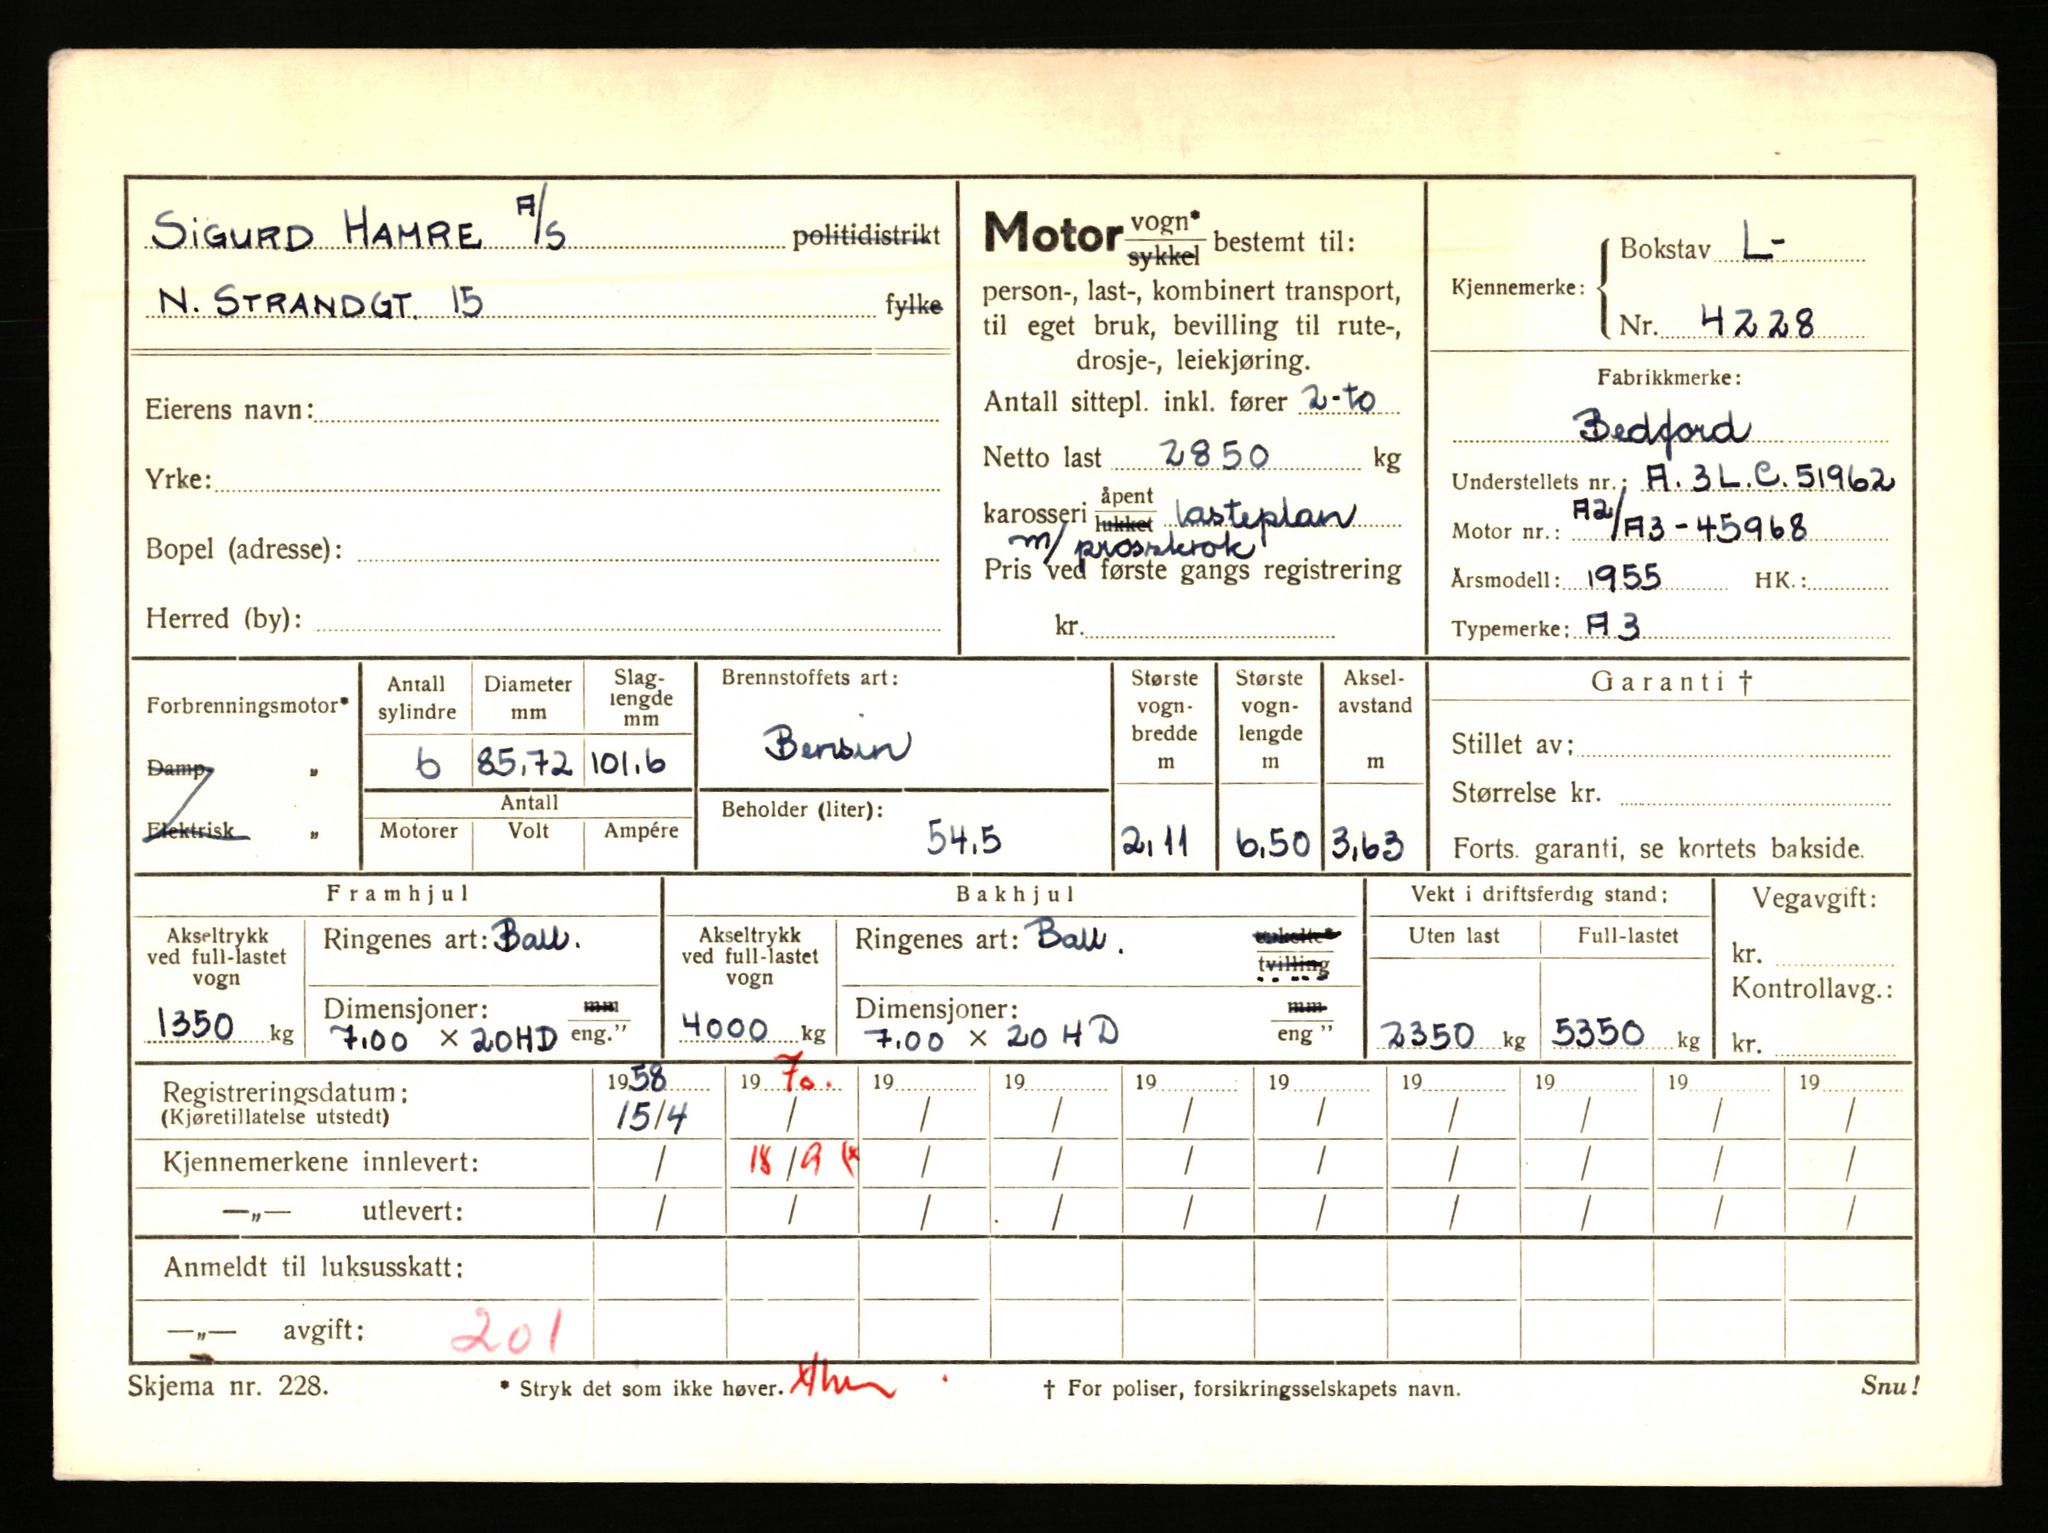 SIGURD HAMRE A/S politidistrikt
N. STRANDGT. 15 fylke
Eierens navn:
Yrke:
Bopel (adresse):
Herred (by):
Motor vogn* sykkel bestemt til:
person-, last-, kombinert transport,
til eget bruk, bevilling til rute-,
drosje-, leiekjøring.
Antall sittepl. inkl. fører 2-to
Netto last 2850 kg
karosseri åpent lukket lasteplan
m/
Pris ved første gangs registrering
kr.
Kjennemerke: Bokstav L-
Nr. 4228
Fabrikkmerke:
Bedford
Understellets nr.: A.3L.C.51962
Motor nr.: A2/A3-45968
Årsmodell: 1955 HK.:
Typemerke: A3
Forbrenningsmotor*
Damp „
Elektrisk „
Antall sylindre
Diameter mm
Slag-
lengde
mm
6 85,72 101,6
Antall
Motorer Volt Ampére
Brennstoffets art:
Bensin
Beholder (liter):
54,5
Største
vogn-
bredde
m
2,11
Største
vogn-
lengde
m
6,50
Aksel-
avstand
m
3,63
Garanti †
Stillet av:
Størrelse kr.
Forts. garanti, se kortets bakside.
Framhjul
Akseltrykk
ved full-lastet
vogn
1350 kg
Ringenes art: Ball.
Dimensjoner: mm
7.00 × 20HD eng."
Bakhjul
Akseltrykk
ved full-lastet
vogn
4000 kg
Ringenes art: Ball. enkelte*
tvilling
Dimensjoner: mm
7.00 × 20 HD eng"
Vekt i driftsferdig stand:
Uten last Full-lastet
2350 kg 5350 kg
Vegavgift:
kr.
Kontrollavg.:
kr.
Registreringsdatum: 1958 1970. 19 19 19 19 19 19 19 19
(Kjøretillatelse utstedt) 15/4 / / / / / / / / /
Kjennemerkene innlevert: / 18/9 / / / / / / / /
—„— utlevert: / / / / / / / / / /
Anmeldt til luksusskatt:
—„— avgift: 201
Skjema nr. 228. * Stryk det som ikke høver. † For poliser, forsikringsselskapets navn. Snu!